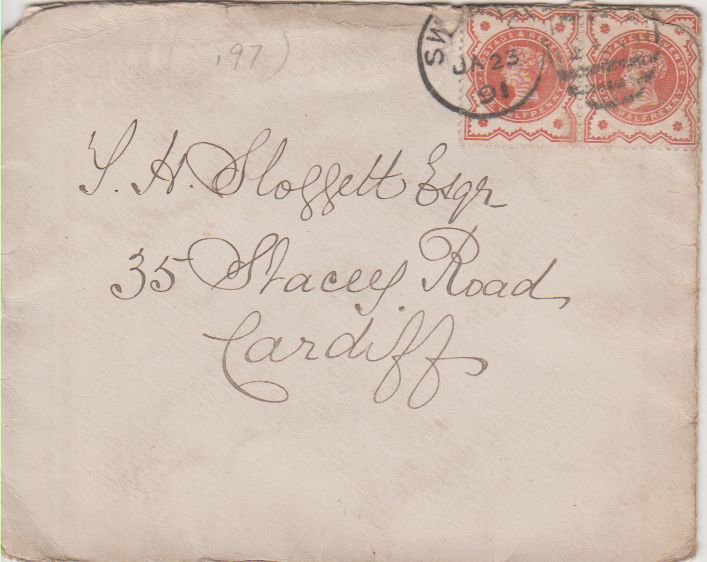 ,97)
SW
JA 23
91
POSTAGE & REVENUE
HALFPENNY
POSTAGE & REVENUE
HALFPENNY
S. H. Sloggett Esqr
35 Stacey Road
Cardiff